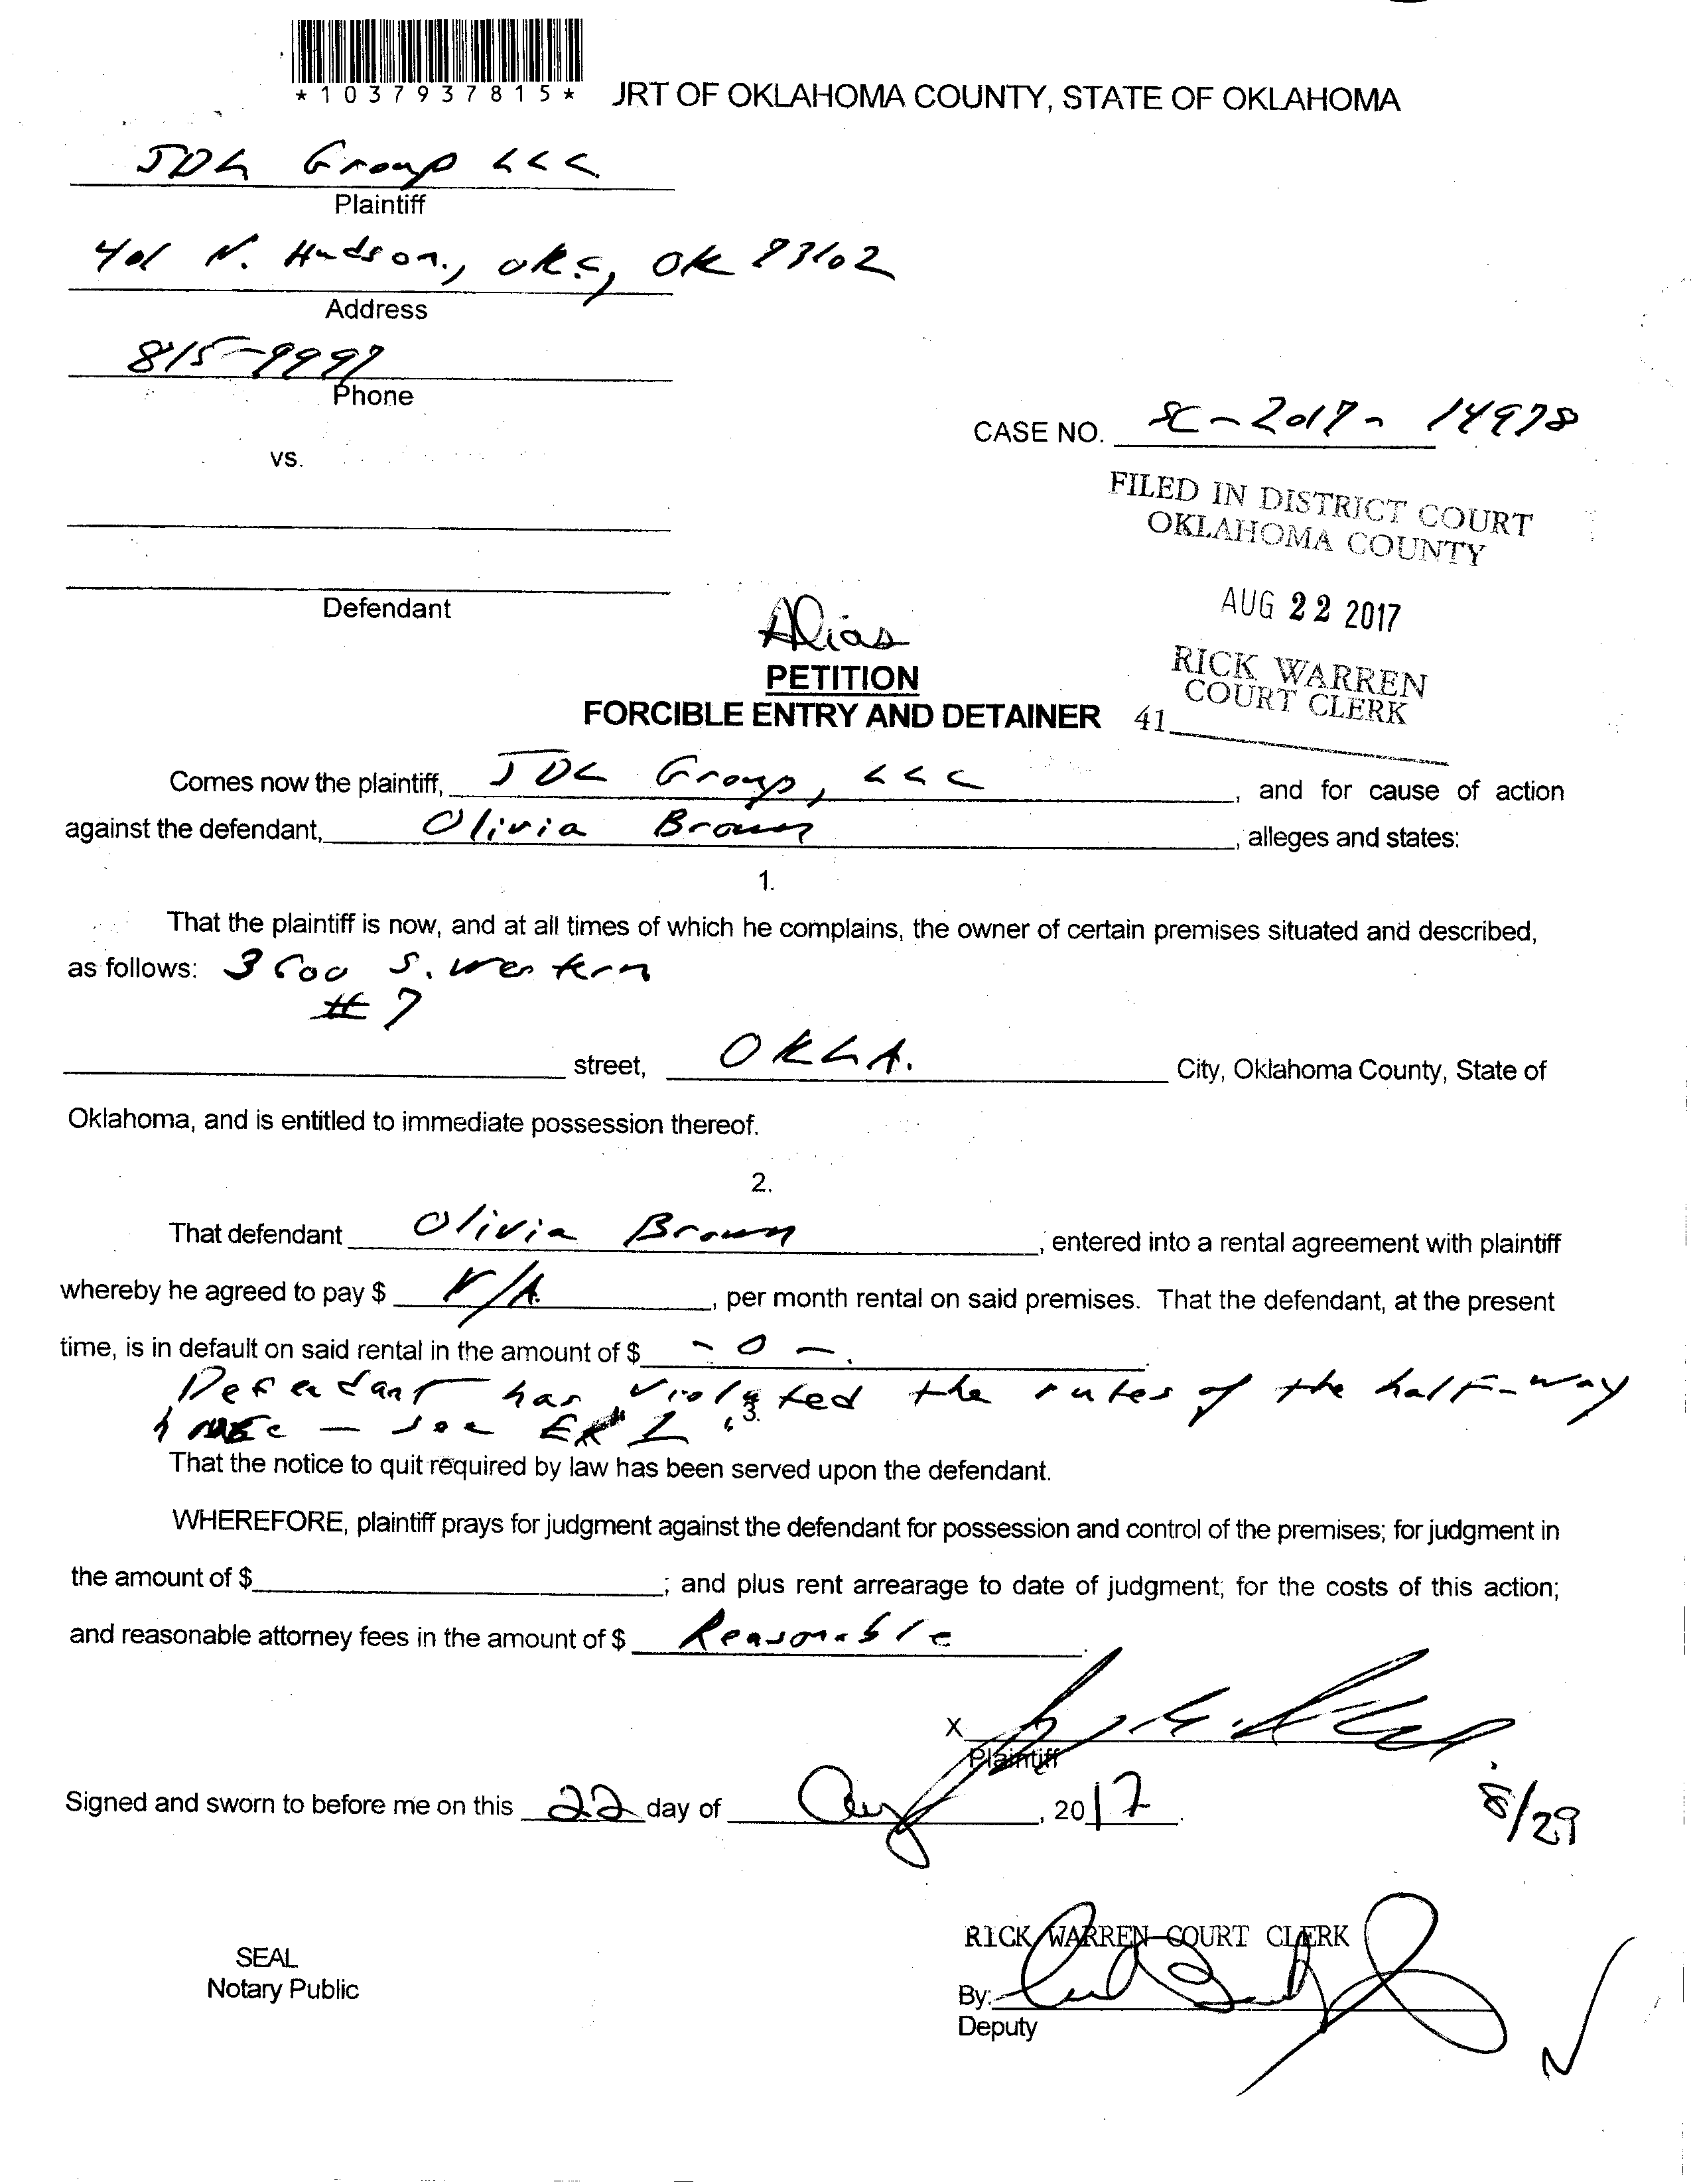 *1037937815*
JRT OF OKLAHOMA COUNTY, STATE OF OKLAHOMA
JDL Group LLC
Plaintiff
401 N. Hudson, OKC, OK 73102
Address
815-9997
Phone
CASE NO. SC-2017-14978
vs.
FILED IN DISTRICT COURT
OKLAHOMA COUNTY
AUG 22 2017
RICK WARREN
COURT CLERK
41
Defendant
Alias
PETITION
FORCIBLE ENTRY AND DETAINER
Comes now the plaintiff, JDL Group, LLC, and for cause of action
against the defendant, Olivia Brown, alleges and states:
1.
That the plaintiff is now, and at all times of which he complains, the owner of certain premises situated and described,
as follows: 3600 S. Western
#7
street, OKLA. City, Oklahoma County, State of
Oklahoma, and is entitled to immediate possession thereof.
2.
That defendant Olivia Brown, entered into a rental agreement with plaintiff
whereby he agreed to pay $ N/A, per month rental on said premises. That the defendant, at the present
time, is in default on said rental in the amount of $ -0-.
Defendant has violated the rules of the half-way
house - see EX 1.
3.
That the notice to quit required by law has been served upon the defendant.
WHEREFORE, plaintiff prays for judgment against the defendant for possession and control of the premises; for judgment in
the amount of $; and plus rent arrearage to date of judgment; for the costs of this action;
and reasonable attorney fees in the amount of $ Reasonable.
X
Plaintiff
Signed and sworn to before me on this 22 day of Aug, 2017.
8/29
RICK WARREN COURT CLERK
SEAL
Notary Public
By:
Deputy